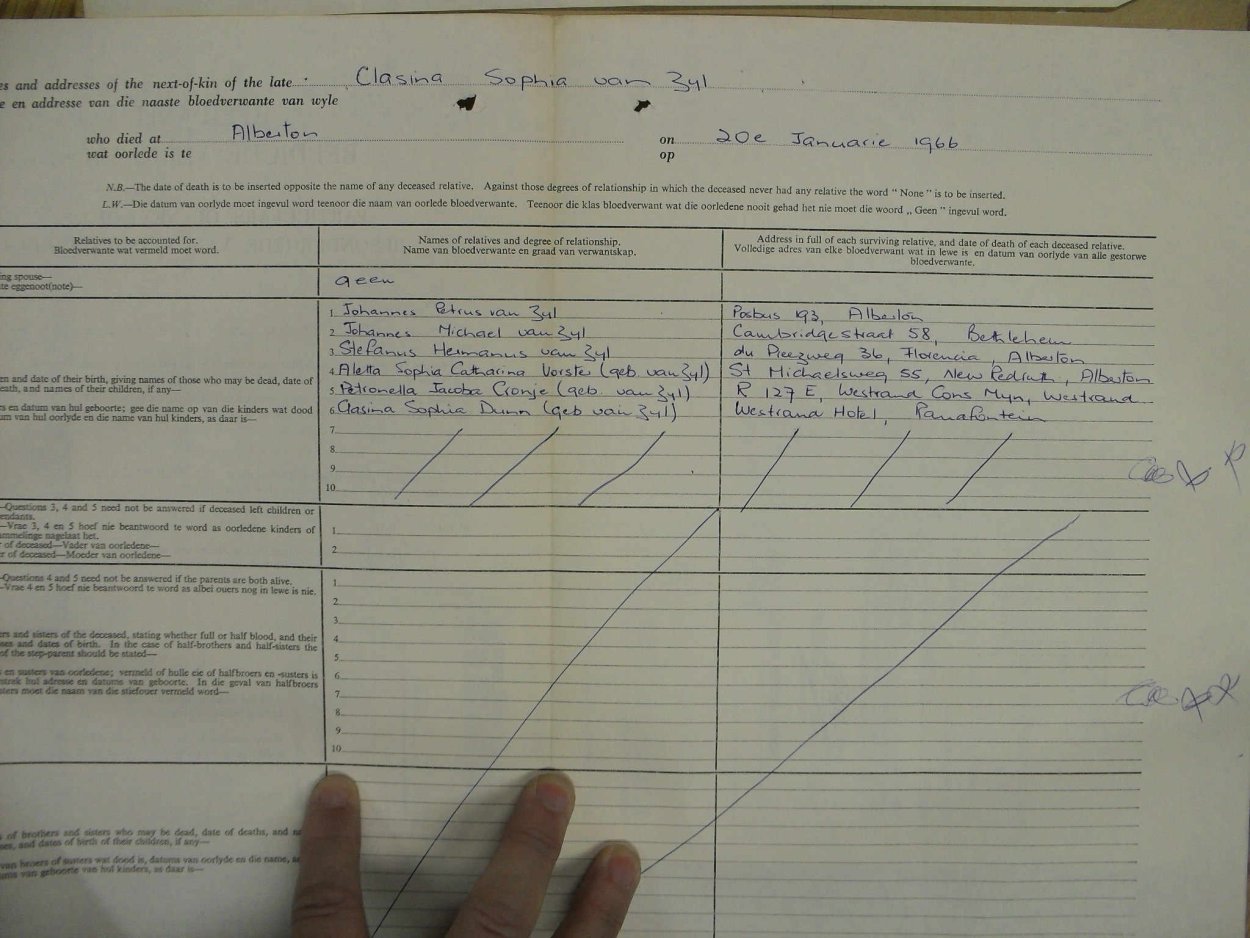 es and addresses of the next-of-kin of the late Clasina Sophia van Zyl
e en addresse van die naaste bloedverwante van wyle
who died at Alberton on 20e Januarie 1966
wat oorlede is te op
N.B.—The date of death is to be inserted opposite the name of any deceased relative. Against those degrees of relationship in which the deceased never had any relative the word " None " is to be inserted.
L.W.—Die datum van oorlyde moet ingevul word teenoor die naam van oorlede bloedverwante. Teenoor die klas bloedverwant wat die oorledene nooit gehad het nie moet die woord „ Geen " ingevul word.
Relatives to be accounted for.
Bloedverwante wat vermeld moet word.
Names of relatives and degree of relationship.
Name van bloedverwante en graad van verwantskap.
Address in full of each surviving relative, and date of death of each deceased relative.
Volledige adres van elke bloedverwant wat in lewe is en datum van oorlyde van alle gestorwe
bloedverwante.
ing spouse—
te eggenoot(note)—
geen
1. Johannes Petrus van Zyl Posbus 193, Alberton
2. Johannes Michael van Zyl Cambridgestraat 58, Bethlehem
3. Stefanus Hermanus van Zyl du Preezweg 36, Florencia, Alberton
4. Aletta Sophia Catharina Vorster (geb. van Zyl) St Michaelsweg 55, New Redruth, Alberton
5. Petronella Jacoba Cronje (geb. van Zyl) R 127 E, Westrand Cons Myn, Westrand
6. Clasina Sophia Dunn (geb van Zyl) Westrand Hotel, Panafontein
7.
8.
9.
10.
en and date of their birth, giving names of those who may be dead, date of
eath, and names of their children, if any—
rs en datum van hul geboorte; gee die name op van die kinders wat dood
um van hul oorlyde en die name van hul kinders, as daar is—
—Questions 3, 4 and 5 need not be answered if deceased left children or
endants.
—Vrae 3, 4 en 5 hoef nie beantwoord te word as oorledene kinders of
ammelinge nagelaat het.
r of deceased—Vader van oorledene—
er of deceased—Moeder van oorledene—
1.
2.
—Questions 4 and 5 need not be answered if the parents are both alive.
—Vrae 4 en 5 hoef nie beantwoord te word as albei ouers nog in lewe is nie.
ers and sisters of the deceased, stating whether full or half blood, and their
sses and dates of birth. In the case of half-brothers and half-sisters the
of the step-parent should be stated—
s en susters van oorledene; vermeld of hulle eie of halfbroers en -susters is
strek hul adresse en datums van geboorte. In die geval van halfbroers
sters moet die naam van die stiefouer vermeld word—
1.
2.
3.
4.
5.
6.
7.
8.
9.
10.
of brothers and sisters who may be dead, date of deaths, and
ses, and dates of birth of their children, if any—
van broers of susters wat dood is, datums van oorlyde en die name,
ums van geboorte van hul kinders, as daar is—